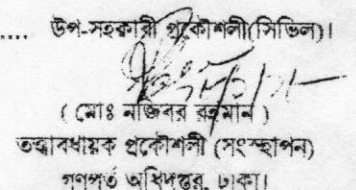 .... উপ-সহকারী প্রকৌশলী(সিভিল)।
( মোঃ নজিবর রহমান )
তত্ত্বাবধায়ক প্রকৌশলী (সংস্থাপন)
গণপূর্ত অধিদপ্তর, ঢাকা।